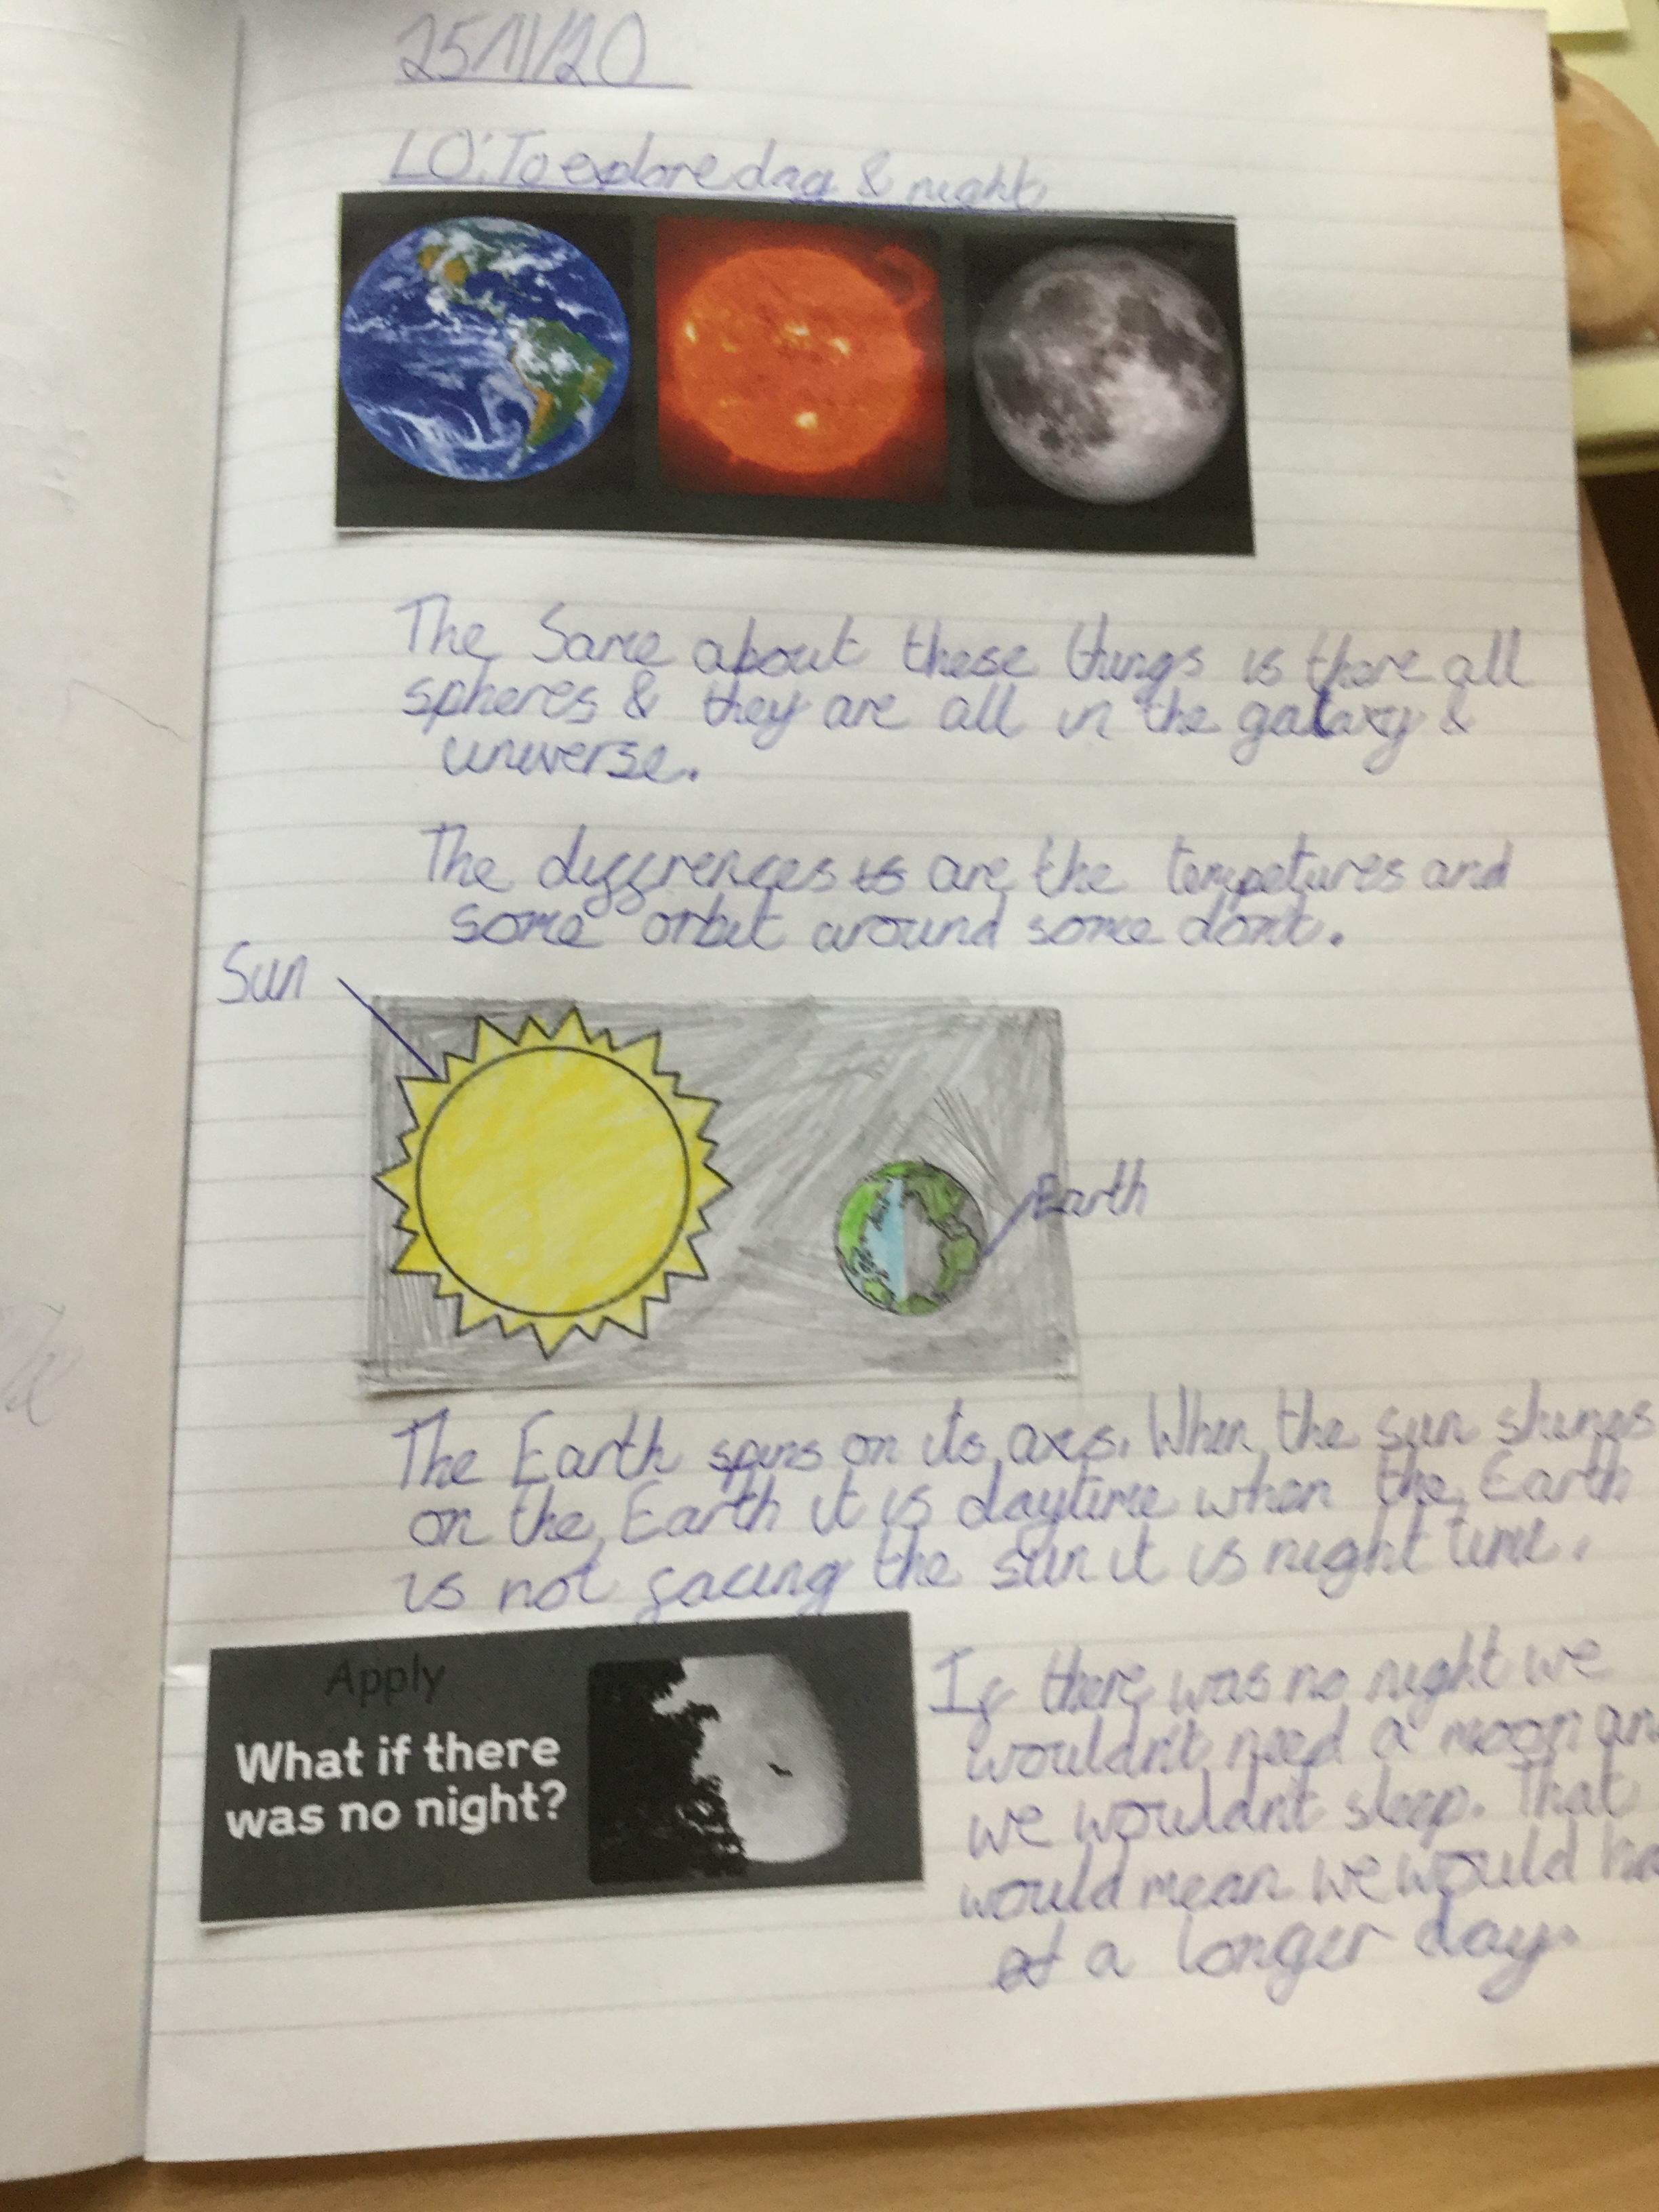 25/11/20
LO: To explore day & night
The Same about these things is there all
spheres & they are all in the galaxy &
universe.
The diffrences is are the tempetures and
some orbit around some don't.
Sun
Earth
The Earth spins on its axis. When the sun shines
on the Earth it is daytime when the Earth
is not facing the sun it is night time.
Apply
What if there
was no night?
If there was no night we
wouldn't need a moon an
we wouldn't sleep. That
would mean we would ha
at a longer day.